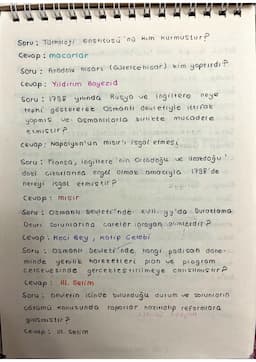 Soru: Türkoloji enstitüsü'nü kim kurmuştur?
Cevap: macarlar
Soru: Anadolu Hisarı (Güzelcehisar) kim yaptırdı?
Cevap: Yıldırım Bayezid
Soru: 1798 yılında Rusya ve İngiltere neye
tepki göstererek Osmanlı devletiyle ittifak
yapmış ve Osmanlılarla birlikte mücadele
etmiştir?
Cevap: Napolyon'un mısır'ı işgal etmesi
Soru: Fransa, İngiltere'nin Ortadoğu ve Uzakdoğu'
daki çıkarlarına engel olmak amacıyla 1798'de
nereyi işgal etmiştir?
Cevap: mısır
Soru: Osmanlı Devleti'nde XVII. yy'da Duraklama
Devri sorunlarına çareler arayan kimlerdir?
Cevap: Koçi Bey, Katip Çelebi
Soru: Osmanlı Devleti'nde hangi padişah döne-
minde yenilik hareketleri plan ve program
çerçevesinde gerçekleştirilmeye çalışılmıştır?
Cevap: III. Selim
Soru: Devletin içinde bulunduğu durum ve sorunların
çözümü konusunda raporlar hazırlatıp reformlara
girişmiştir?
Cevap: III. Selim